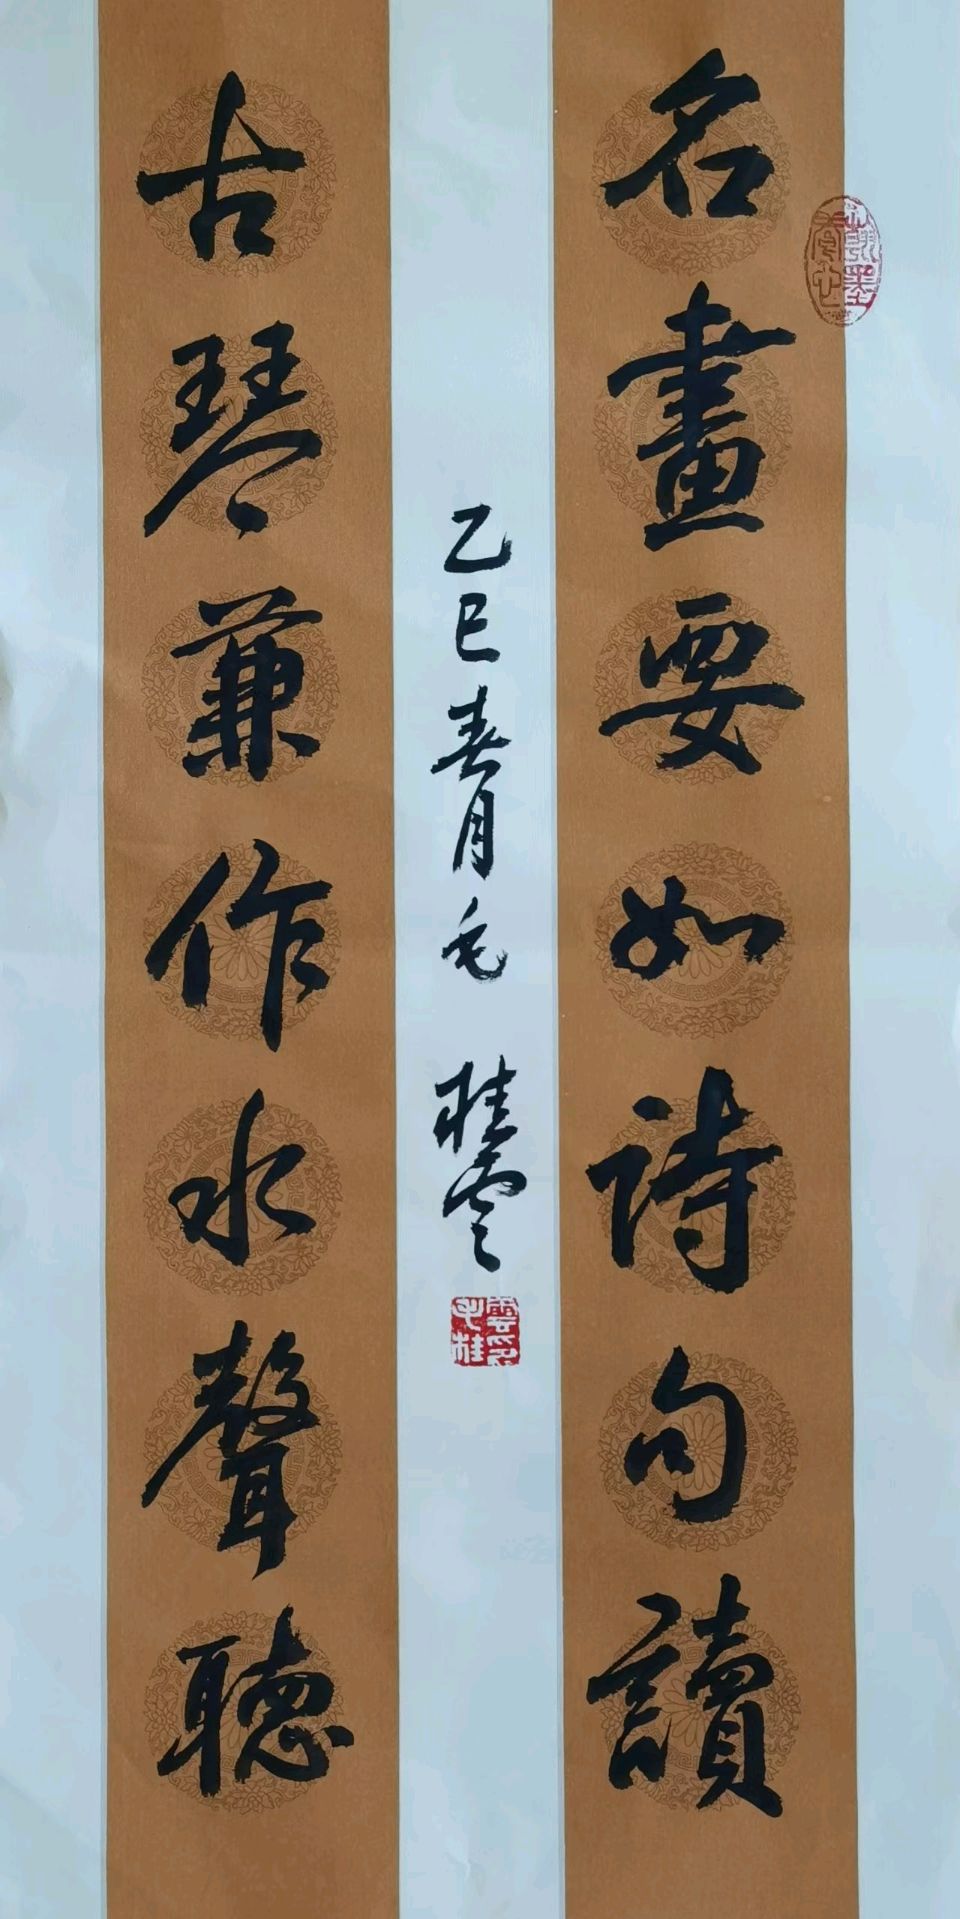 名畫要如詩句讀
古琴兼作水聲聽
乙巳春月毛桂雲
毛桂雲印